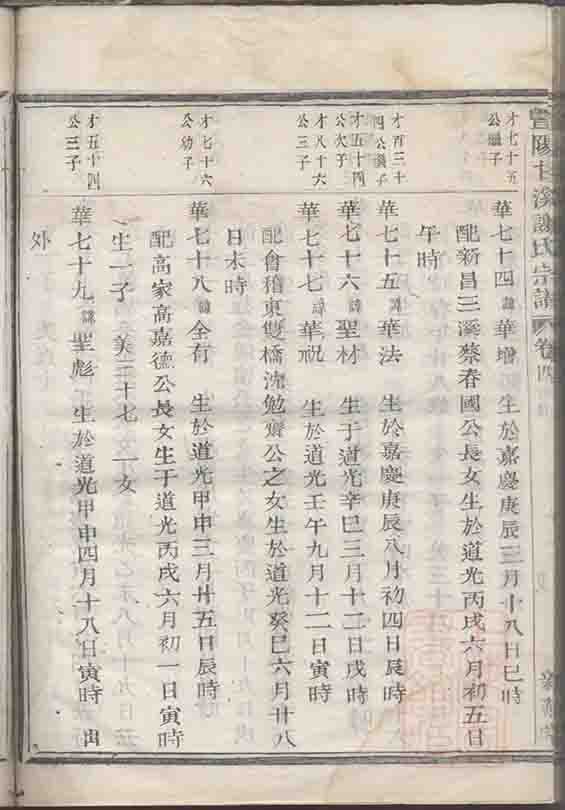 暨陽上溪謝氏宗譜 卷四
才七十五
公繼子
華七十四 諱 華增 生於嘉慶庚辰三月十八日巳時
配新昌三溪蔡春國公長女生於道光丙戌六月初五日
午時
才百二十
四公繼子
華七十五 諱 華法 生於嘉慶庚辰八月初四日辰時
才五十四
公次子
華七十六 諱 聖材 生于道光辛巳三月十二日戌時
才八十六
公三子
華七十七 諱 華祝 生於道光壬午九月十二日寅時
配會稽東雙橋沈勉齋公之女生於道光癸巳六月廿八
日未時
才七十六
公幼子
華七十八 諱 全有 生於道光甲申三月廿五日辰時
配高家高嘉德公長女生于道光丙戌六月初一日寅時
生一子 美二十七 一女
才五十四
公三子
華七十九 諱 聖彪 生於道光甲申四月十八日寅時 出
外